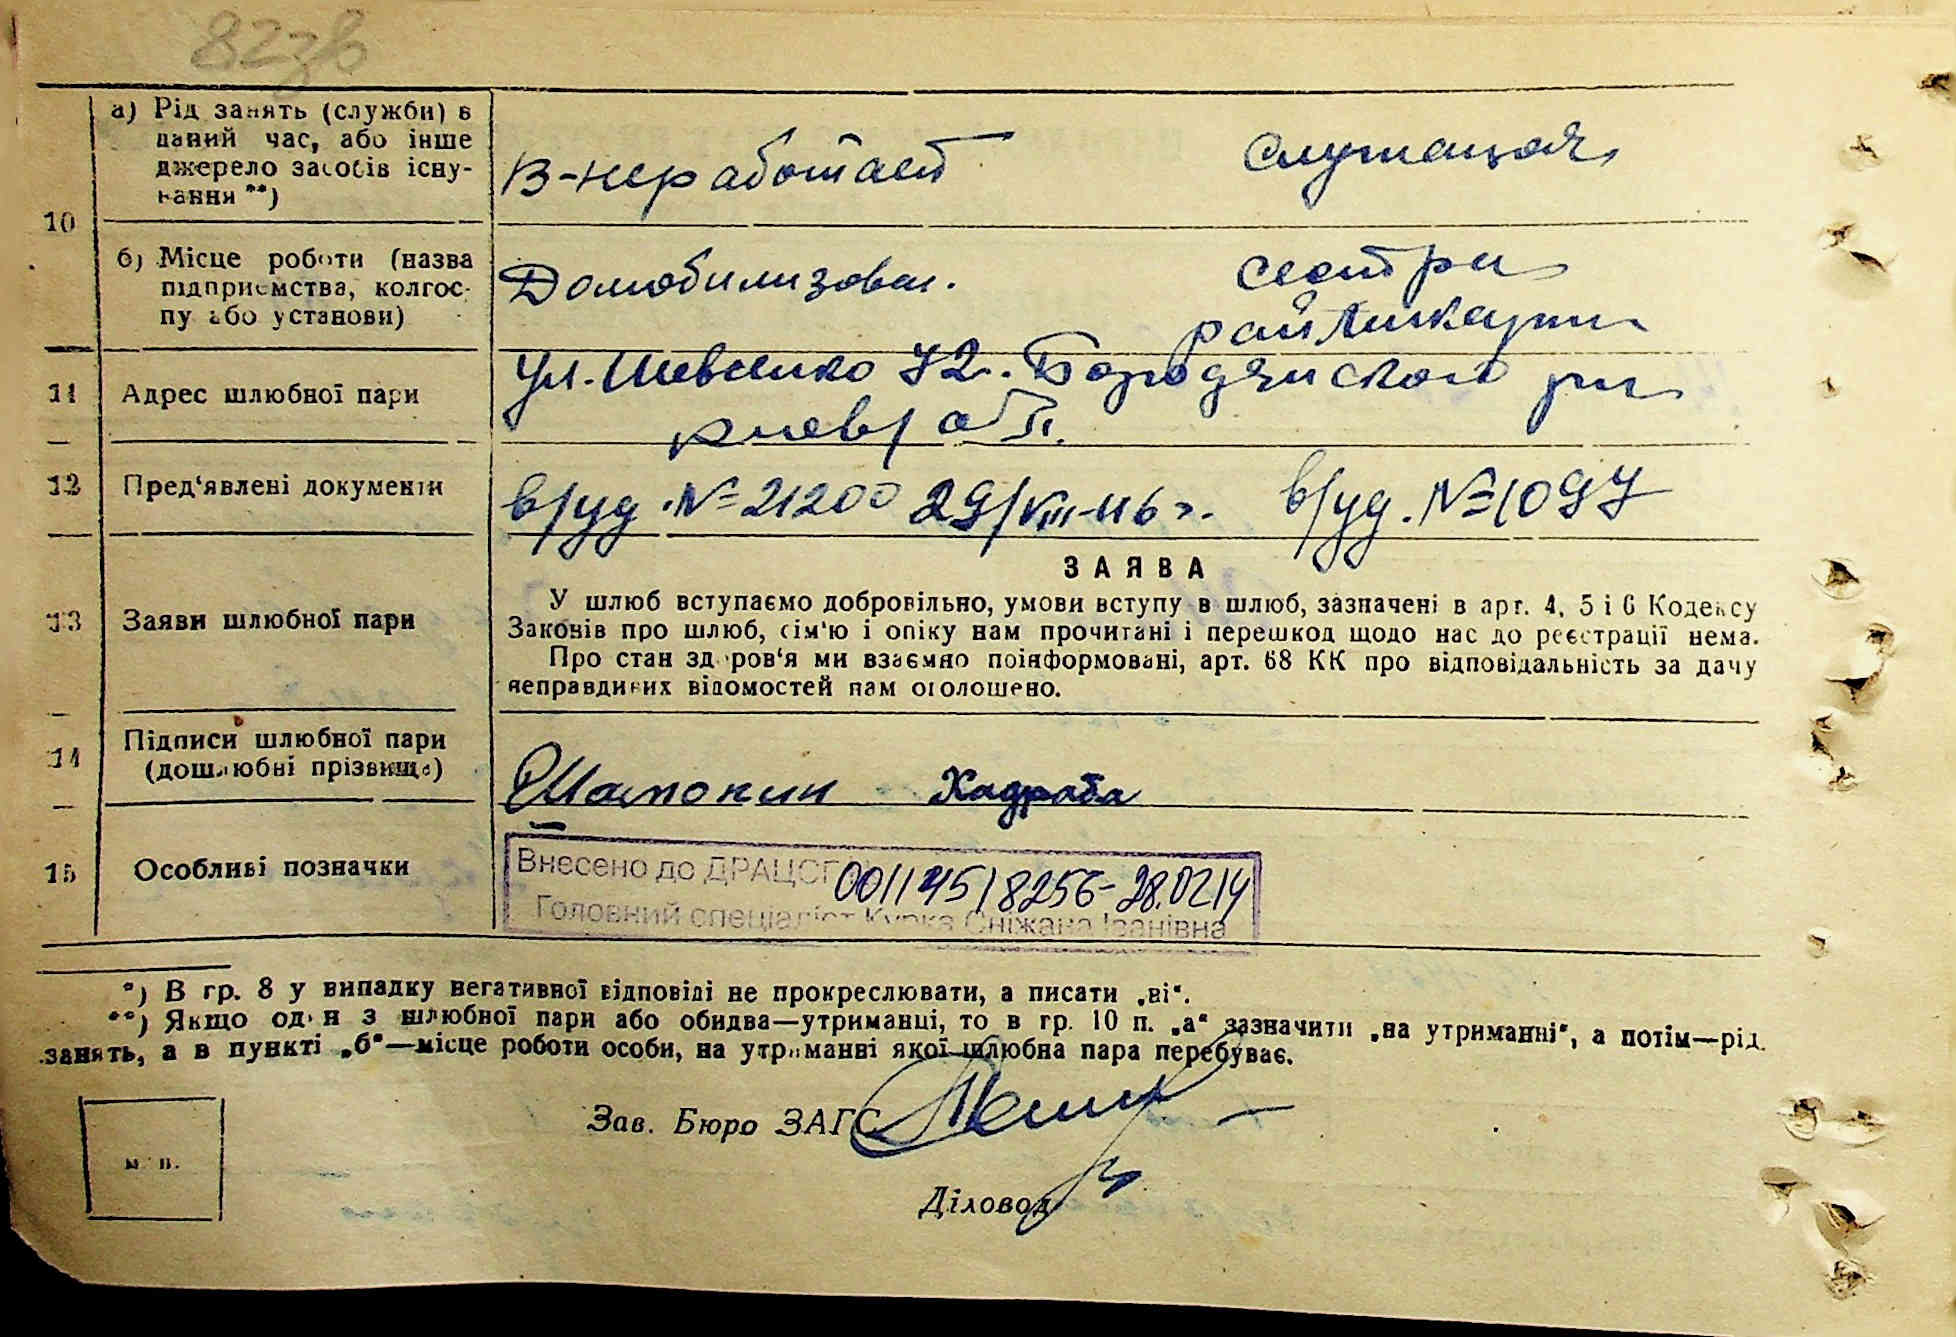 82зв
10
а) Рід занять (служби) в
даний час, або інше
джерело засобів існу-
вання **)
В-неработает
служащая
б) Місце роботи (назва
підприємства, колгос-
пу або установи)
Домобилизован.
сестра
11
Адрес шлюбної пари
ул. Шевченко 72. Бородянского р-н
киев/обл.
12
Пред'явлені документи
в/уд. №=21200 29/VIII-46 г.
в/уд. №=1097
13
Заяви шлюбної пари
ЗАЯВА
У шлюб вступаємо добровільно, умови вступу в шлюб, зазначені в арт. 4, 5 і 6 Кодексу
Законів про шлюб, сім'ю і опіку нам прочитані і перешкод щодо нас до реєстрації нема.
Про стан здоров'я ми взаємно поінформовані, арт. 68 КК про відповідальність за дачу
неправдивих відомостей нам оголошено.
14
Підписи шлюбної пари
(дошлюбні прізвища)
15
Особливі позначки
Внесено до ДРАЦСГ 00114518256-28.02.14
Головний спеціаліст Курка Сніжана Іванівна
*) В гр. 8 у випадку негативної відповіді не прокреслювати, а писати „ні“.
**) Якщо один з шлюбної пари або обидва—утриманці, то в гр. 10 п. „а“ зазначити „на утриманні“, а потім—рід
занять, а в пункті „б“—місце роботи особи, на утриманні якої шлюбна пара перебуває.
Зав. Бюро ЗАГС
м. п.
Діловод